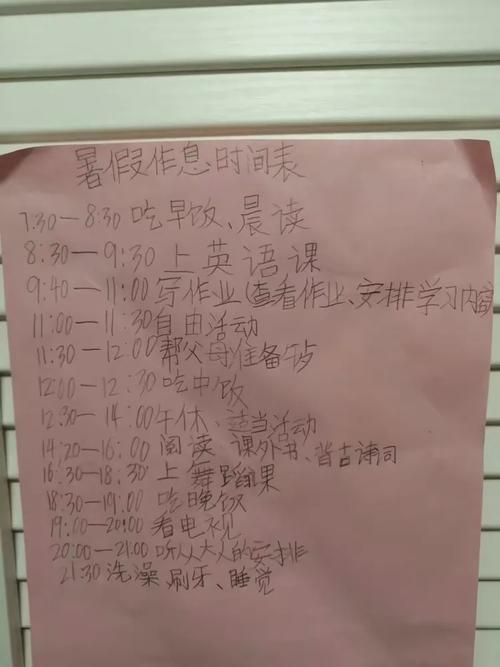 暑假作息时间表
7:30—8:30 吃早饭、晨读
8:30—9:30 上英语课
9:40—11:00 写作业(查看作业、安排学习内容
11:00—11:30 自由活动
11:30—12:00 帮父母准备午
12:00—12:30 吃中饭
12:30—14:00 午休、适当活动
14:20—16:00 阅读、课外书、背古诗司
16:30—18:30 上舞蹈课
18:30—19:00 吃晚饭
19:00—20:00 看电视
20:00—21:00 听从大人的安排
21:30 洗澡、刷牙、睡觉